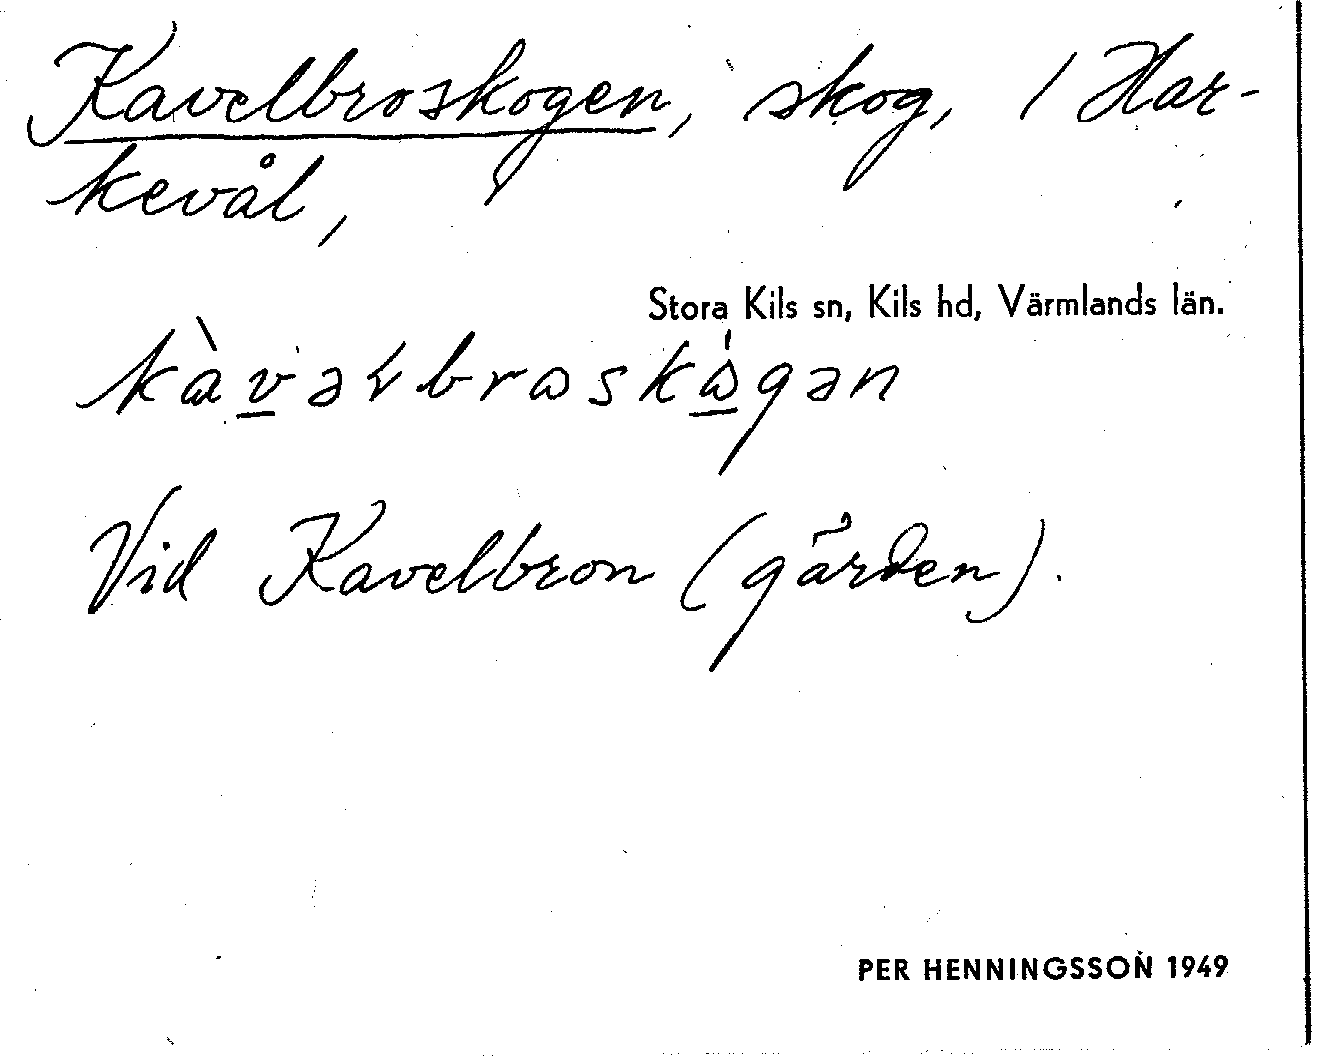 Kavelbroskogen, skog, 1 Har-
kevål,
Stora Kils sn, Kils hd, Värmlands län.
Vid Kavelbron (gården).
PER HENNINGSSON 1949